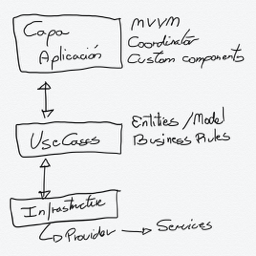 Capa
Aplicación
MVVM
Coordinator
Custom components
UseCases
Entities / Model
Business Rules
Infrastructure
Provider → Services